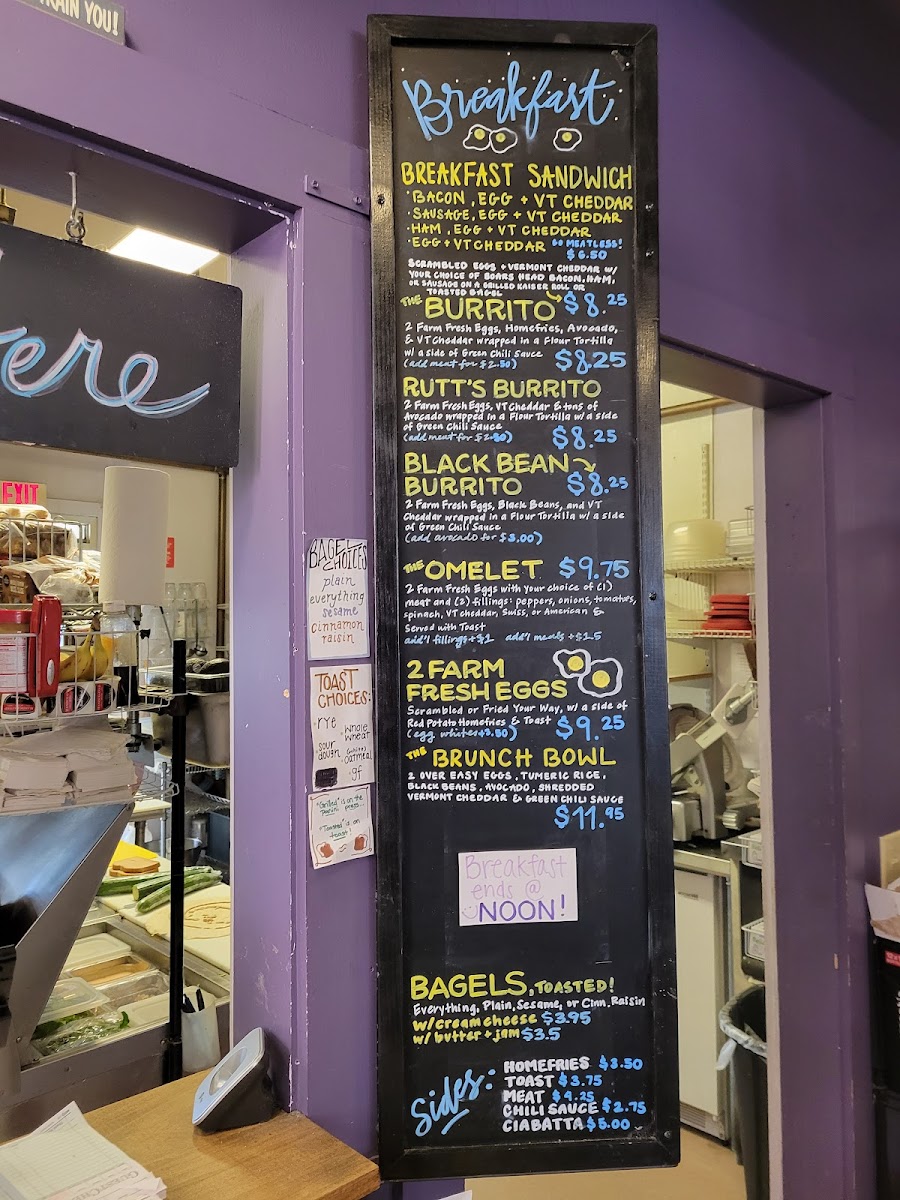 TRAIN YOU!
ere
EXIT
Breakfast
BREAKFAST SANDWICH
• BACON, EGG + VT CHEDDAR
• SAUSAGE, EGG + VT CHEDDAR
• HAM, EGG + VT CHEDDAR
• EGG + VT CHEDDAR GO MEATLESS!
$6.50
SCRAMBLED EGGS + VERMONT CHEDDAR W/
YOUR CHOICE OF BOARS HEAD BACON, HAM,
OR SAUSAGE ON A GRILLED KAISER ROLL OR
TOASTED BAGEL
$8.25
THE BURRITO
2 Farm Fresh Eggs, Homefries, Avocado,
& VT Cheddar wrapped in a Flour Tortilla
w/ a side of Green Chili Sauce
(add meat for $2.50) $8.25
RUTT'S BURRITO
2 Farm Fresh Eggs, VT Cheddar & tons of
Avocado wrapped in a Flour Tortilla w/ a side
of Green Chili Sauce
(add meat for $2.50) $8.25
BLACK BEAN
BURRITO $8.25
2 Farm Fresh Eggs, Black Beans, and VT
Cheddar wrapped in a Flour Tortilla w/ a side
of Green Chili Sauce
(add avocado for $3.00)
THE OMELET $9.75
2 Farm Fresh Eggs with your choice of (1)
meat and (2) fillings: peppers, onions, tomatoes,
spinach, VT cheddar, Swiss, or American &
Served with Toast
add'l fillings +$1 add'l meats +$1.5
2 FARM
FRESH EGGS
Scrambled or Fried Your Way, w/ a side of
Red Potato Homefries & Toast
(egg whites +3.50) $9.25
THE BRUNCH BOWL
2 OVER EASY EGGS, TUMERIC RICE,
BLACK BEANS, AVOCADO, SHREDDED
VERMONT CHEDDAR & GREEN CHILI SAUCE
$11.95
Breakfast
ends @
NOON!
BAGELS, TOASTED!
Everything, Plain, Sesame, or Cinn. Raisin
w/ cream cheese $3.95
w/ butter + jam $3.5
Sides:
HOMEFRIES $3.50
TOAST $3.75
MEAT $4.25
CHILI SAUCE $2.75
CIABATTA $5.00
BAGEL
CHOICES
plain
everything
sesame
cinnamon
raisin
TOAST
CHOICES:
• rye
• whole
wheat
• sour
dough
• (white)
oatmeal
• gf
"Grilled" is on the
panini press...
"Toasted" is on
toast!